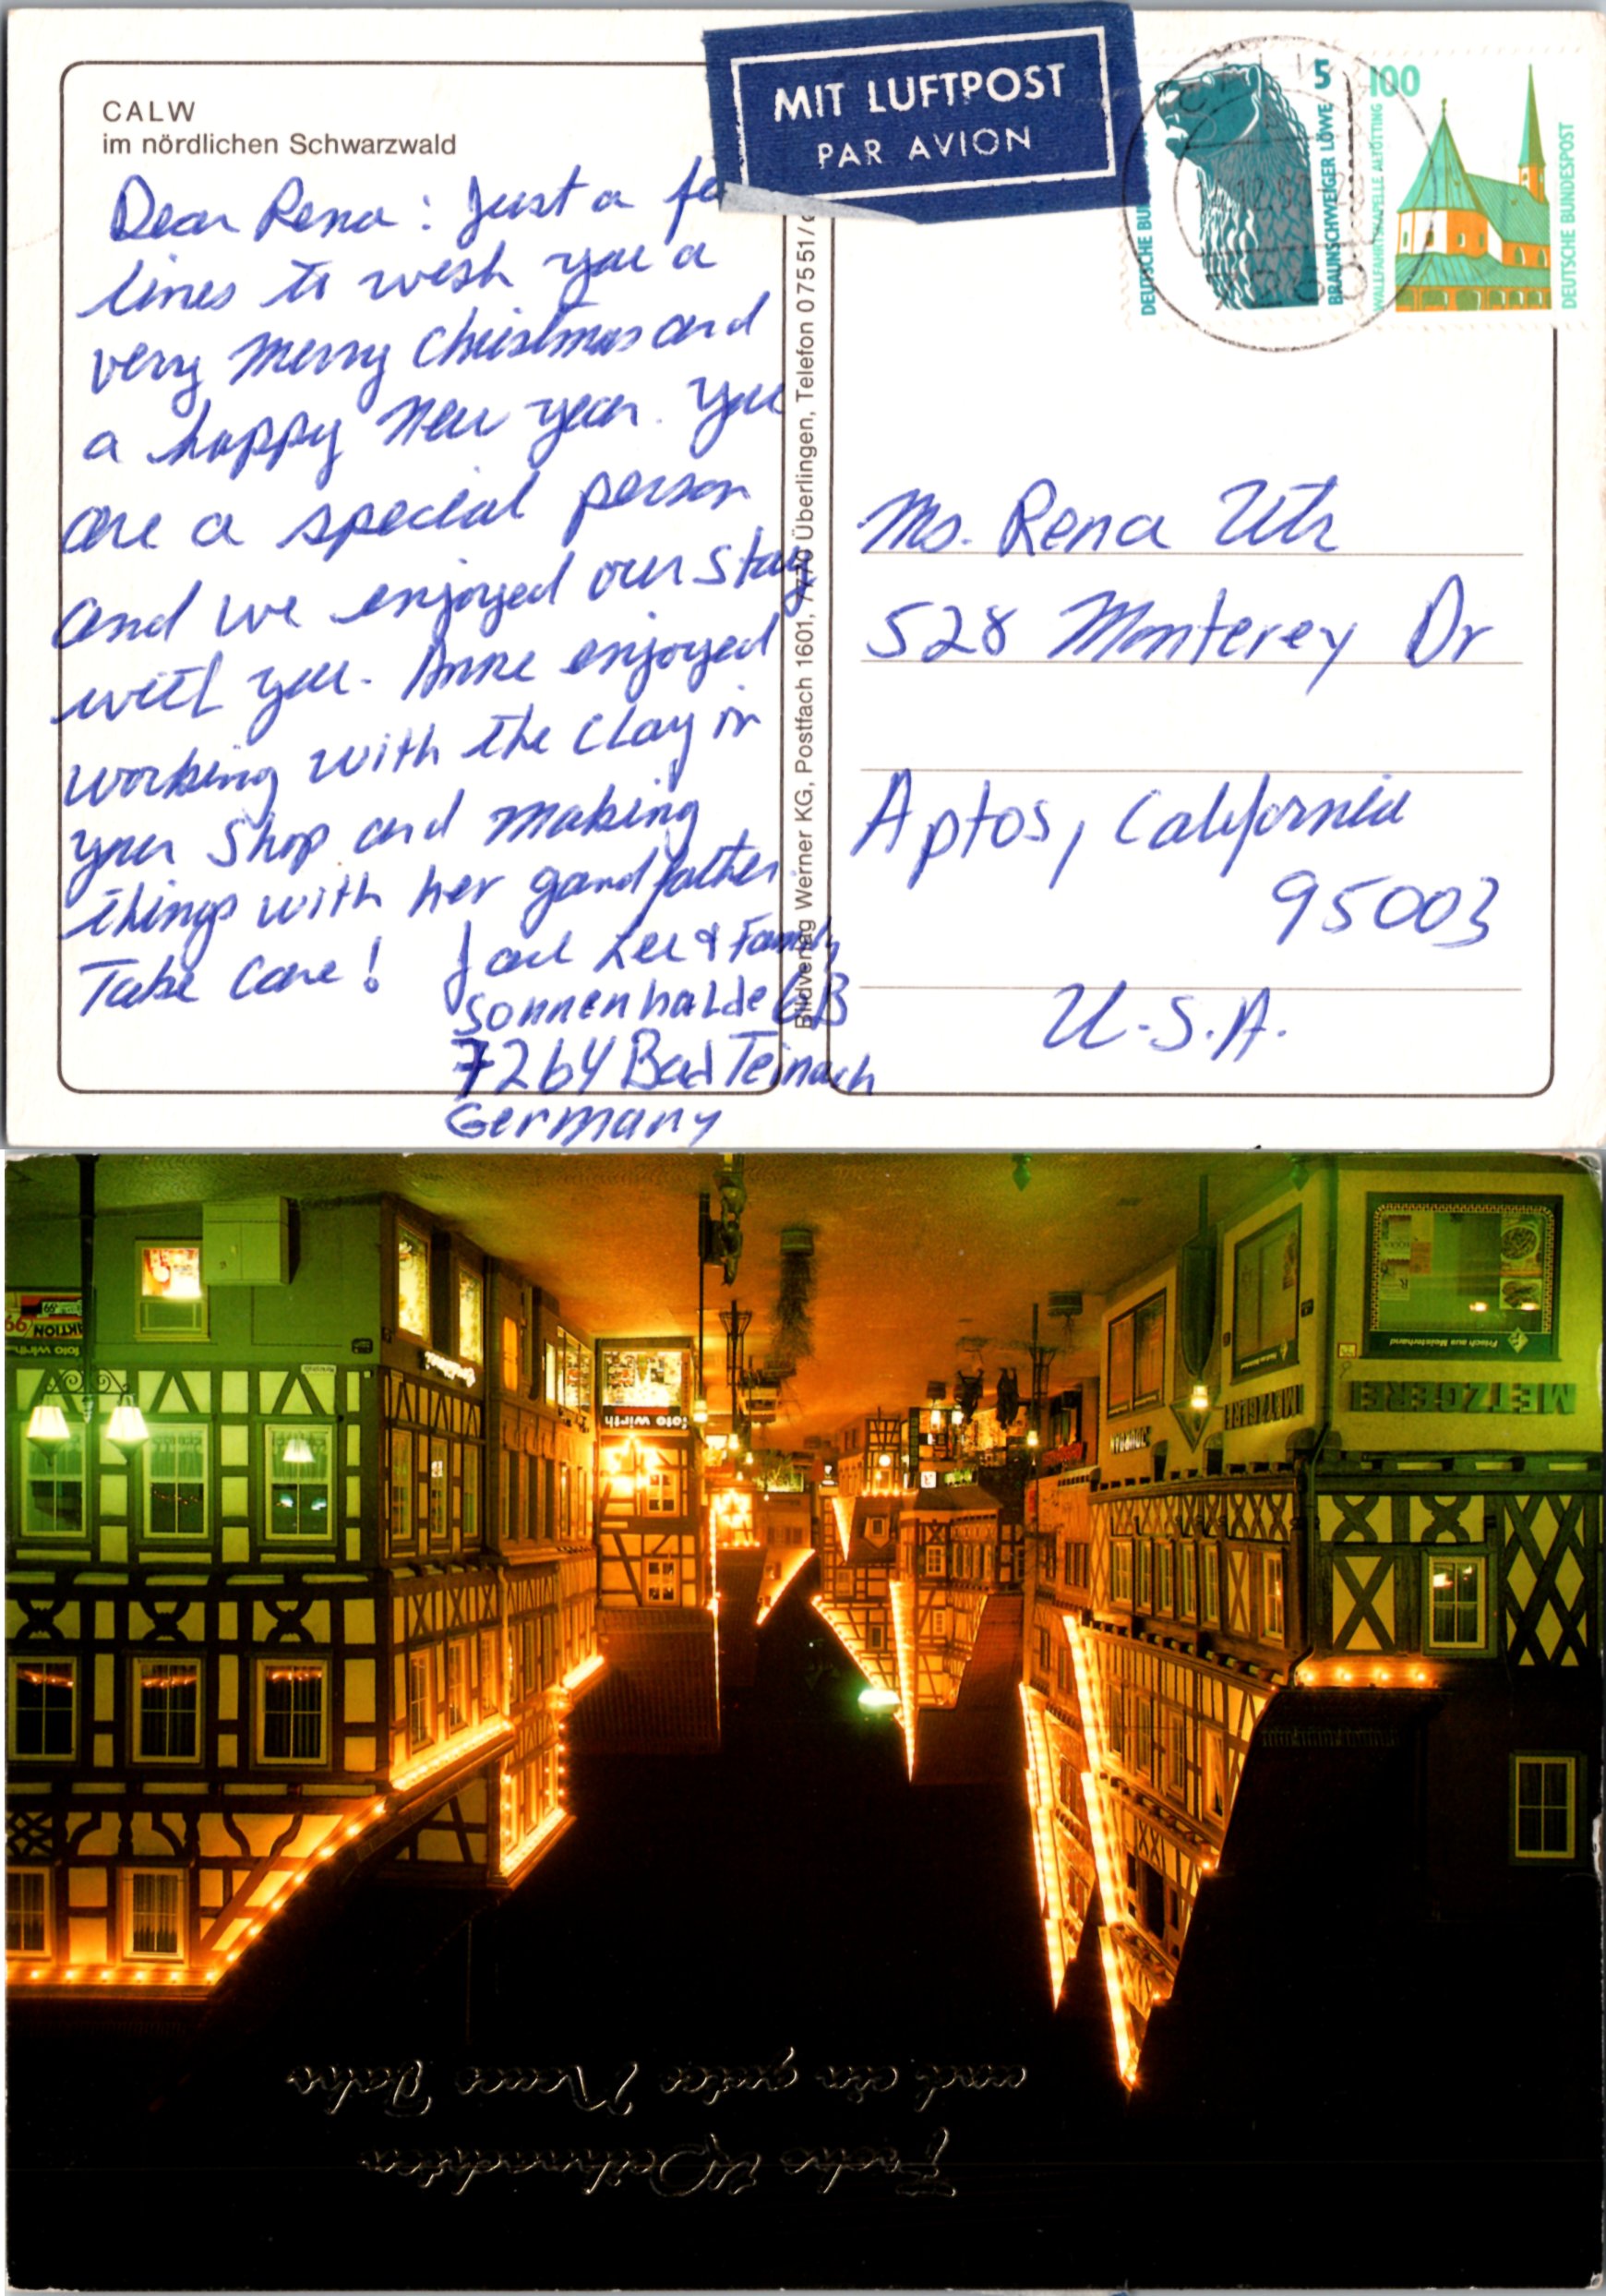 CALW
im nördlichen Schwarzwald
MIT LUFTPOST
PAR AVION
5
BRAUNSCHWEIGER LÖWE
100
WALLFAHRTSKAPELLE ALTÖTTING
DEUTSCHE BUNDESPOST
Dear Rena: Just a
lines to wish you a
very merry Christmas and
a happy New year. You
are a special person
and we enjoyed our stay
with you. Anne enjoyed
working with the clay in
your shop and making
things with her gandfather.
Take Care!
Lee & Family
Sonnenhalde 6B
7264 Bad Teinach
Germany
Bildverlag Werner KG, Postfach 1601, 7770 Überlingen, Telefon 07551/
Ms. Rena Utz
528 Monterey Dr
Aptos, California
95003
U.S.A.
Frohe Weihnachten
und ein gutes Neues Jahr
METZGEREI
METZGEREI
Frisch aus Meisterhand
foto wirth
foto wirth
AKTION